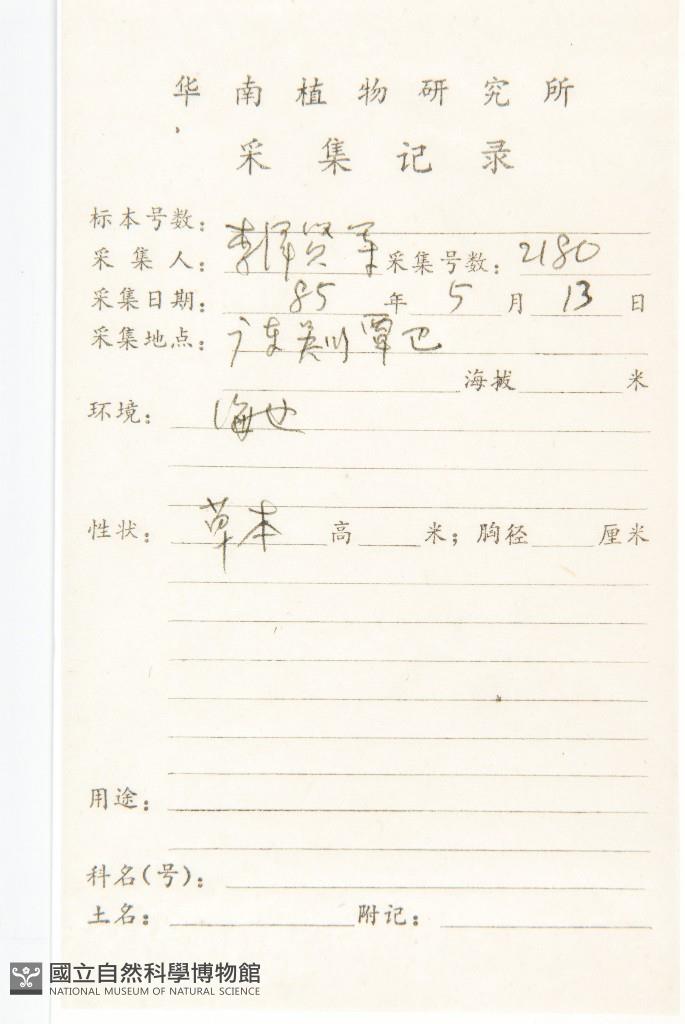 华南植物研究所
采集记录
标本号数：
采集人：李泽贤 等 采集号数：2180
采集日期：85年5月13日
采集地点：广东吴川覃巴
海拔 米
环境：海边
性状：草本 高 米；胸径 厘米
用途：
科名(号)：
土名： 附记：
國立自然科學博物館
NATIONAL MUSEUM OF NATURAL SCIENCE